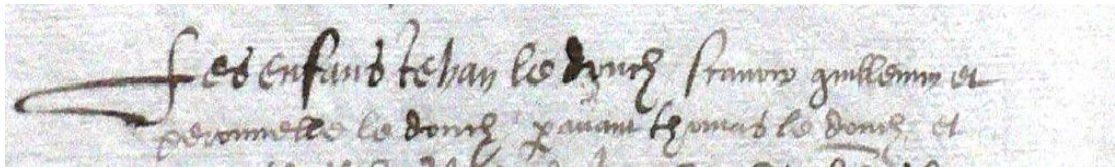 Les enfans Jehan le douch scavoir guillemin et
peronnelle le douch paravant thomas le douch et